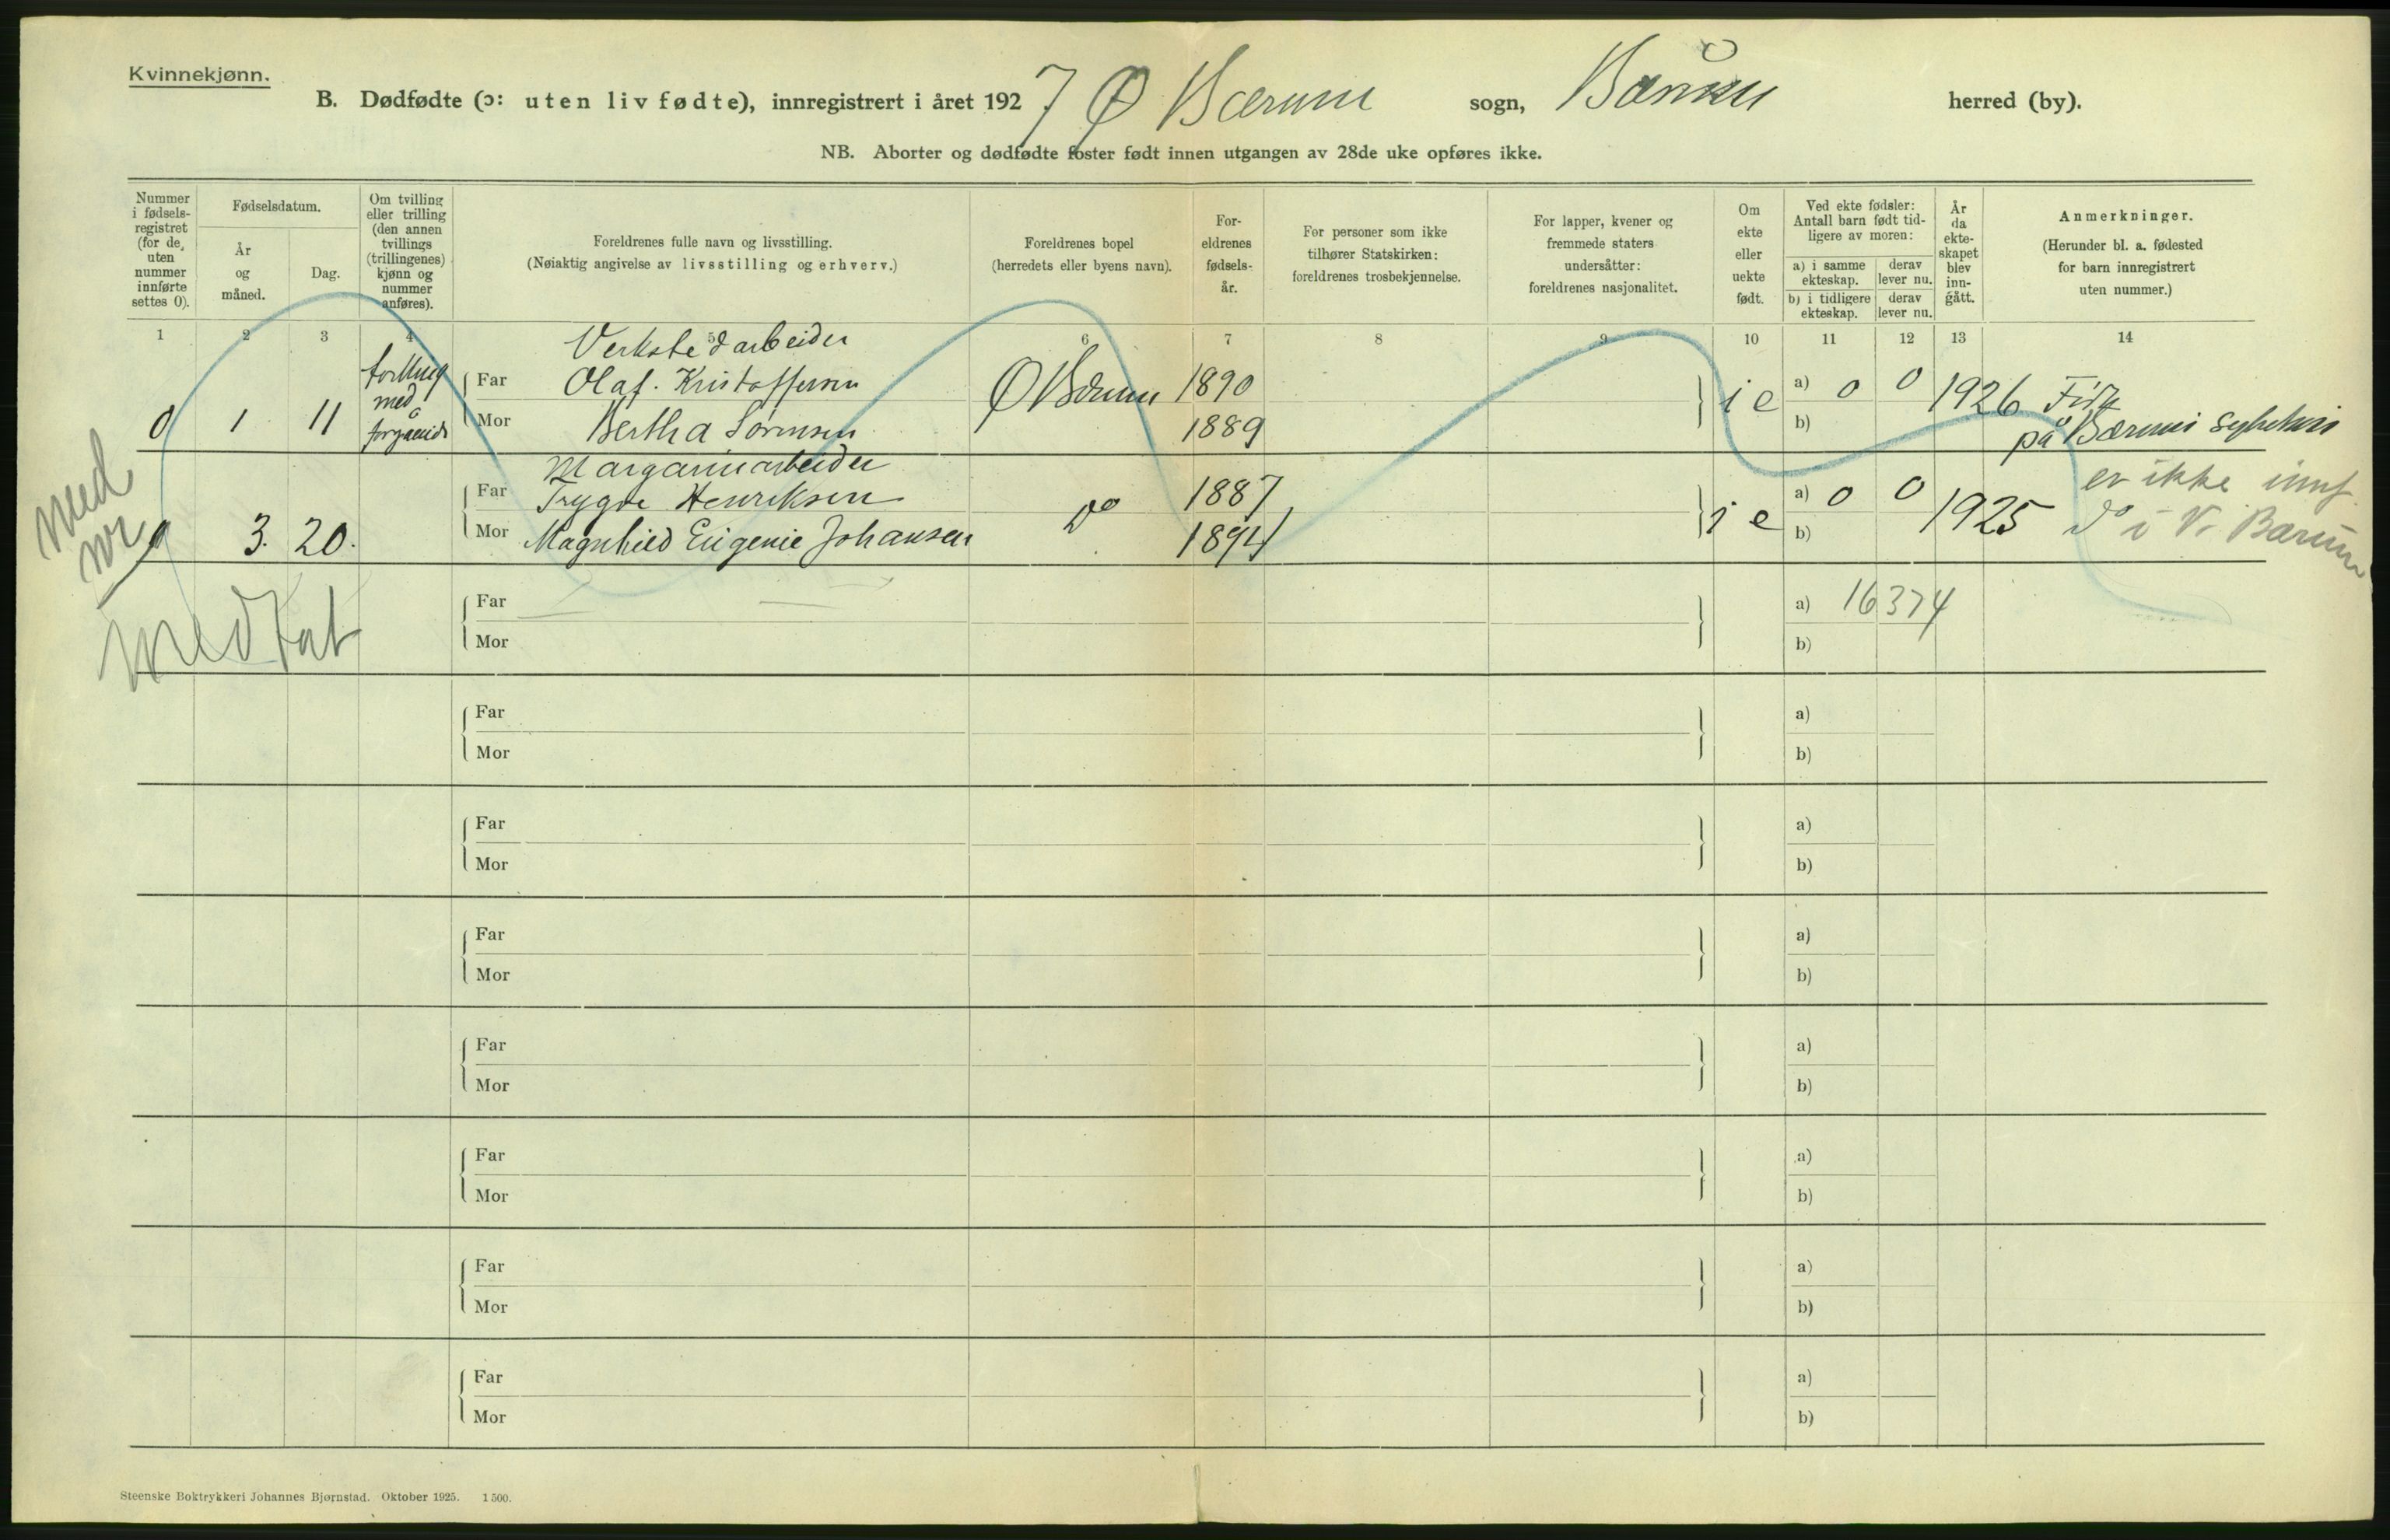 Kvinnekjønn.
B. Dødfødte (ɔ: uten liv fødte), innregistrert i året 1927 Ø Bærum sogn, Bærum herred (by).
NB. Aborter og dødfødte foster født innen utgangen av 28de uke opføres ikke.
Nummer i fødsels- registret (for de uten nummer innførte settes 0).
Fødselsdatum.
År og måned.
Dag.
Om tvilling eller trilling (den annen tvillings (trillingenes) kjønn og nummer anføres).
Foreldrenes fulle navn og livsstilling.
(Nøiaktig angivelse av livsstilling og erhverv.)
Foreldrenes bopel
(herredets eller byens navn).
For- eldrenes fødsels- år.
For personer som ikke tilhører Statskirken: foreldrenes trosbekjennelse.
For lapper, kvener og fremmede staters undersåtter: foreldrenes nasjonalitet.
Om ekte eller uekte født.
Ved ekte fødsler: Antall barn født tid- ligere av moren:
a) i samme ekteskap. derav lever nu.
b) i tidligere ekteskap. derav lever nu.
År da ekte- skapet blev inn- gått.
Anmerkninger.
(Herunder bl. a. fødested for barn innregistrert uten nummer.)
1 2 3 4 5 6 7 8 9 10 11 12 13 14
Verkstedarbeider
Far Olaf Kristoffersen Ø Bærum 1890 a) 0 0 1926
0 1 11 med i e
Mor Bertha Sørensen 1889 b) på Bærums sykehus
Margarinarbeider
Far Trygve Henriksen do 1887 a) 0 0 er ikke innf.
0 3. 20. i e 1925 do i V. Bærum
Mor Magnhild Eugenie Johansen 1894 b)
med nr
medtat
Far a) 16374
Mor b)
Far a)
Mor b)
Far a)
Mor b)
Far a)
Mor b)
Far a)
Mor b)
Far a)
Mor b)
Far a)
Mor b)
Far a)
Mor b)
Steenske Boktrykkeri Johannes Bjørnstad. Oktober 1925. 1500.